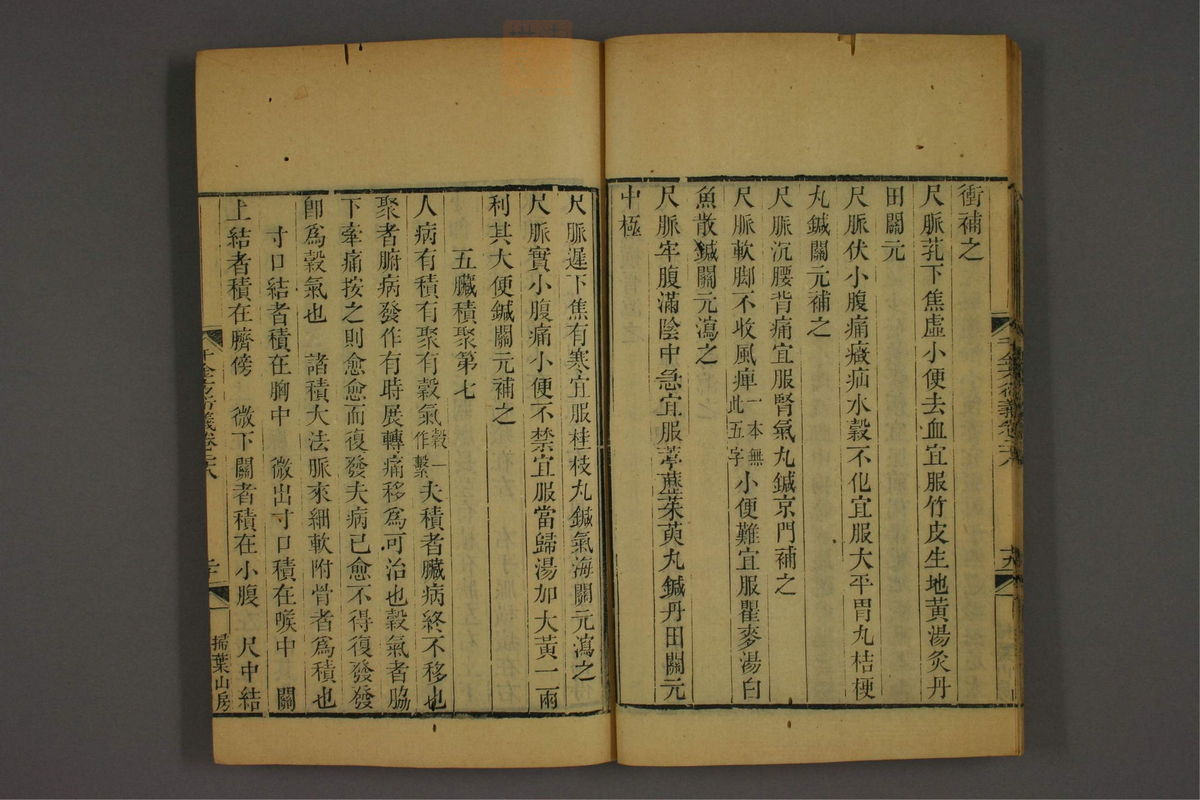 衝補之
尺脈芤下焦虛小便去血宜服竹皮生地黃湯灸丹
田關元
尺脈伏小腹痛癥疝水穀不化宜服大平胃丸桔梗
丸鍼關元補之
尺脈沉腰背痛宜服腎氣丸鍼京門補之
尺脈軟脚不收風痺一本無此五字小便難宜服瞿麥湯白
魚散鍼關元瀉之
尺脈牢腹滿陰中急宜服葶藶茱萸丸鍼丹田關元
中極
尺脈遲下焦有寒宜服桂枝丸鍼氣海關元瀉之
尺脈實小腹痛小便不禁宜服當歸湯加大黃一兩
利其大便鍼關元補之
五臟積聚第七
人病有積有聚有穀氣穀一作繫夫積者臟病終不移也
聚者腑病發作有時展轉痛移爲可治也穀氣者脇
下牽痛按之則愈愈而復發夫病已愈不得復發發
卽爲穀氣也　諸積大法脈來細軟附骨者爲積也
寸口結者積在胸中　微出寸口積在喉中　關
上結者積在臍傍　微下關者積在小腹　尺中結
千金方衍義卷二十八
二十
掃葉山房